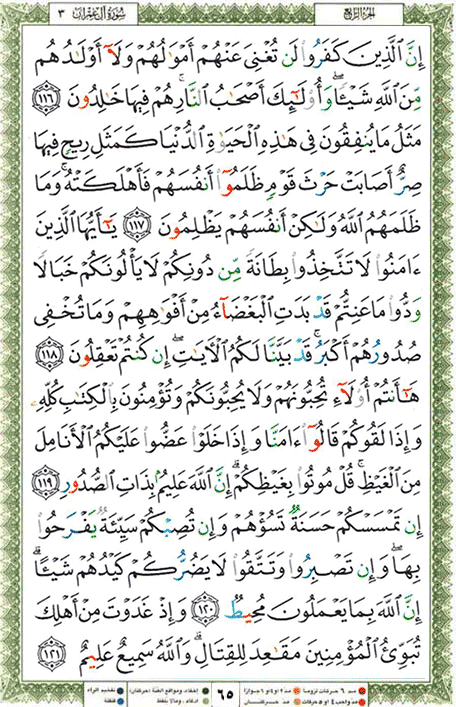 سورة آل عمران ٣
الجزء الرابع
إِنَّ الَّذِينَ كَفَرُوا لَن تُغْنِيَ عَنْهُمْ أَمْوَٰلُهُمْ وَلَآ أَوْلَٰدُهُم
مِّنَ اللَّهِ شَيْـًٔا ۖ وَأُوْلَٰٓئِكَ أَصْحَٰبُ النَّارِ ۚ هُمْ فِيهَا خَٰلِدُونَ ١١٦
مَثَلُ مَا يُنفِقُونَ فِى هَٰذِهِ الْحَيَوٰةِ الدُّنْيَا كَمَثَلِ رِيحٍ فِيهَا
صِرٌّ أَصَابَتْ حَرْثَ قَوْمٍ ظَلَمُوٓا أَنفُسَهُمْ فَأَهْلَكَتْهُ ۚ وَمَا
ظَلَمَهُمُ اللَّهُ وَلَٰكِنْ أَنفُسَهُمْ يَظْلِمُونَ ١١٧ يَٰٓأَيُّهَا الَّذِينَ
ءَامَنُوا لَا تَتَّخِذُوا بِطَانَةً مِّن دُونِكُمْ لَا يَأْلُونَكُمْ خَبَالًا
وَدُّوا مَا عَنِتُّمْ قَدْ بَدَتِ الْبَغْضَآءُ مِنْ أَفْوَٰهِهِمْ وَمَا تُخْفِى
صُدُورُهُمْ أَكْبَرُ ۚ قَدْ بَيَّنَّا لَكُمُ الْـَٔايَٰتِ ۖ إِن كُنتُمْ تَعْقِلُونَ ١١٨
هَٰٓأَنتُمْ أُوْلَآءِ تُحِبُّونَهُمْ وَلَا يُحِبُّونَكُمْ وَتُؤْمِنُونَ بِالْكِتَٰبِ كُلِّهِۦ
وَإِذَا لَقُوكُمْ قَالُوٓا ءَامَنَّا وَإِذَا خَلَوْا عَضُّوا عَلَيْكُمُ الْأَنَامِلَ
مِنَ الْغَيْظِ ۚ قُلْ مُوتُوا بِغَيْظِكُمْ ۗ إِنَّ اللَّهَ عَلِيمٌۢ بِذَاتِ الصُّدُورِ ١١٩
إِن تَمْسَسْكُمْ حَسَنَةٌ تَسُؤْهُمْ وَإِن تُصِبْكُمْ سَيِّئَةٌ يَفْرَحُوا
بِهَا ۖ وَإِن تَصْبِرُوا وَتَتَّقُوا لَا يَضُرُّكُمْ كَيْدُهُمْ شَيْـًٔا ۗ
إِنَّ اللَّهَ بِمَا يَعْمَلُونَ مُحِيطٌ ١٢٠ وَإِذْ غَدَوْتَ مِنْ أَهْلِكَ
تُبَوِّئُ الْمُؤْمِنِينَ مَقَٰعِدَ لِلْقِتَالِ ۗ وَاللَّهُ سَمِيعٌ عَلِيمٌ ١٢١
٦٥